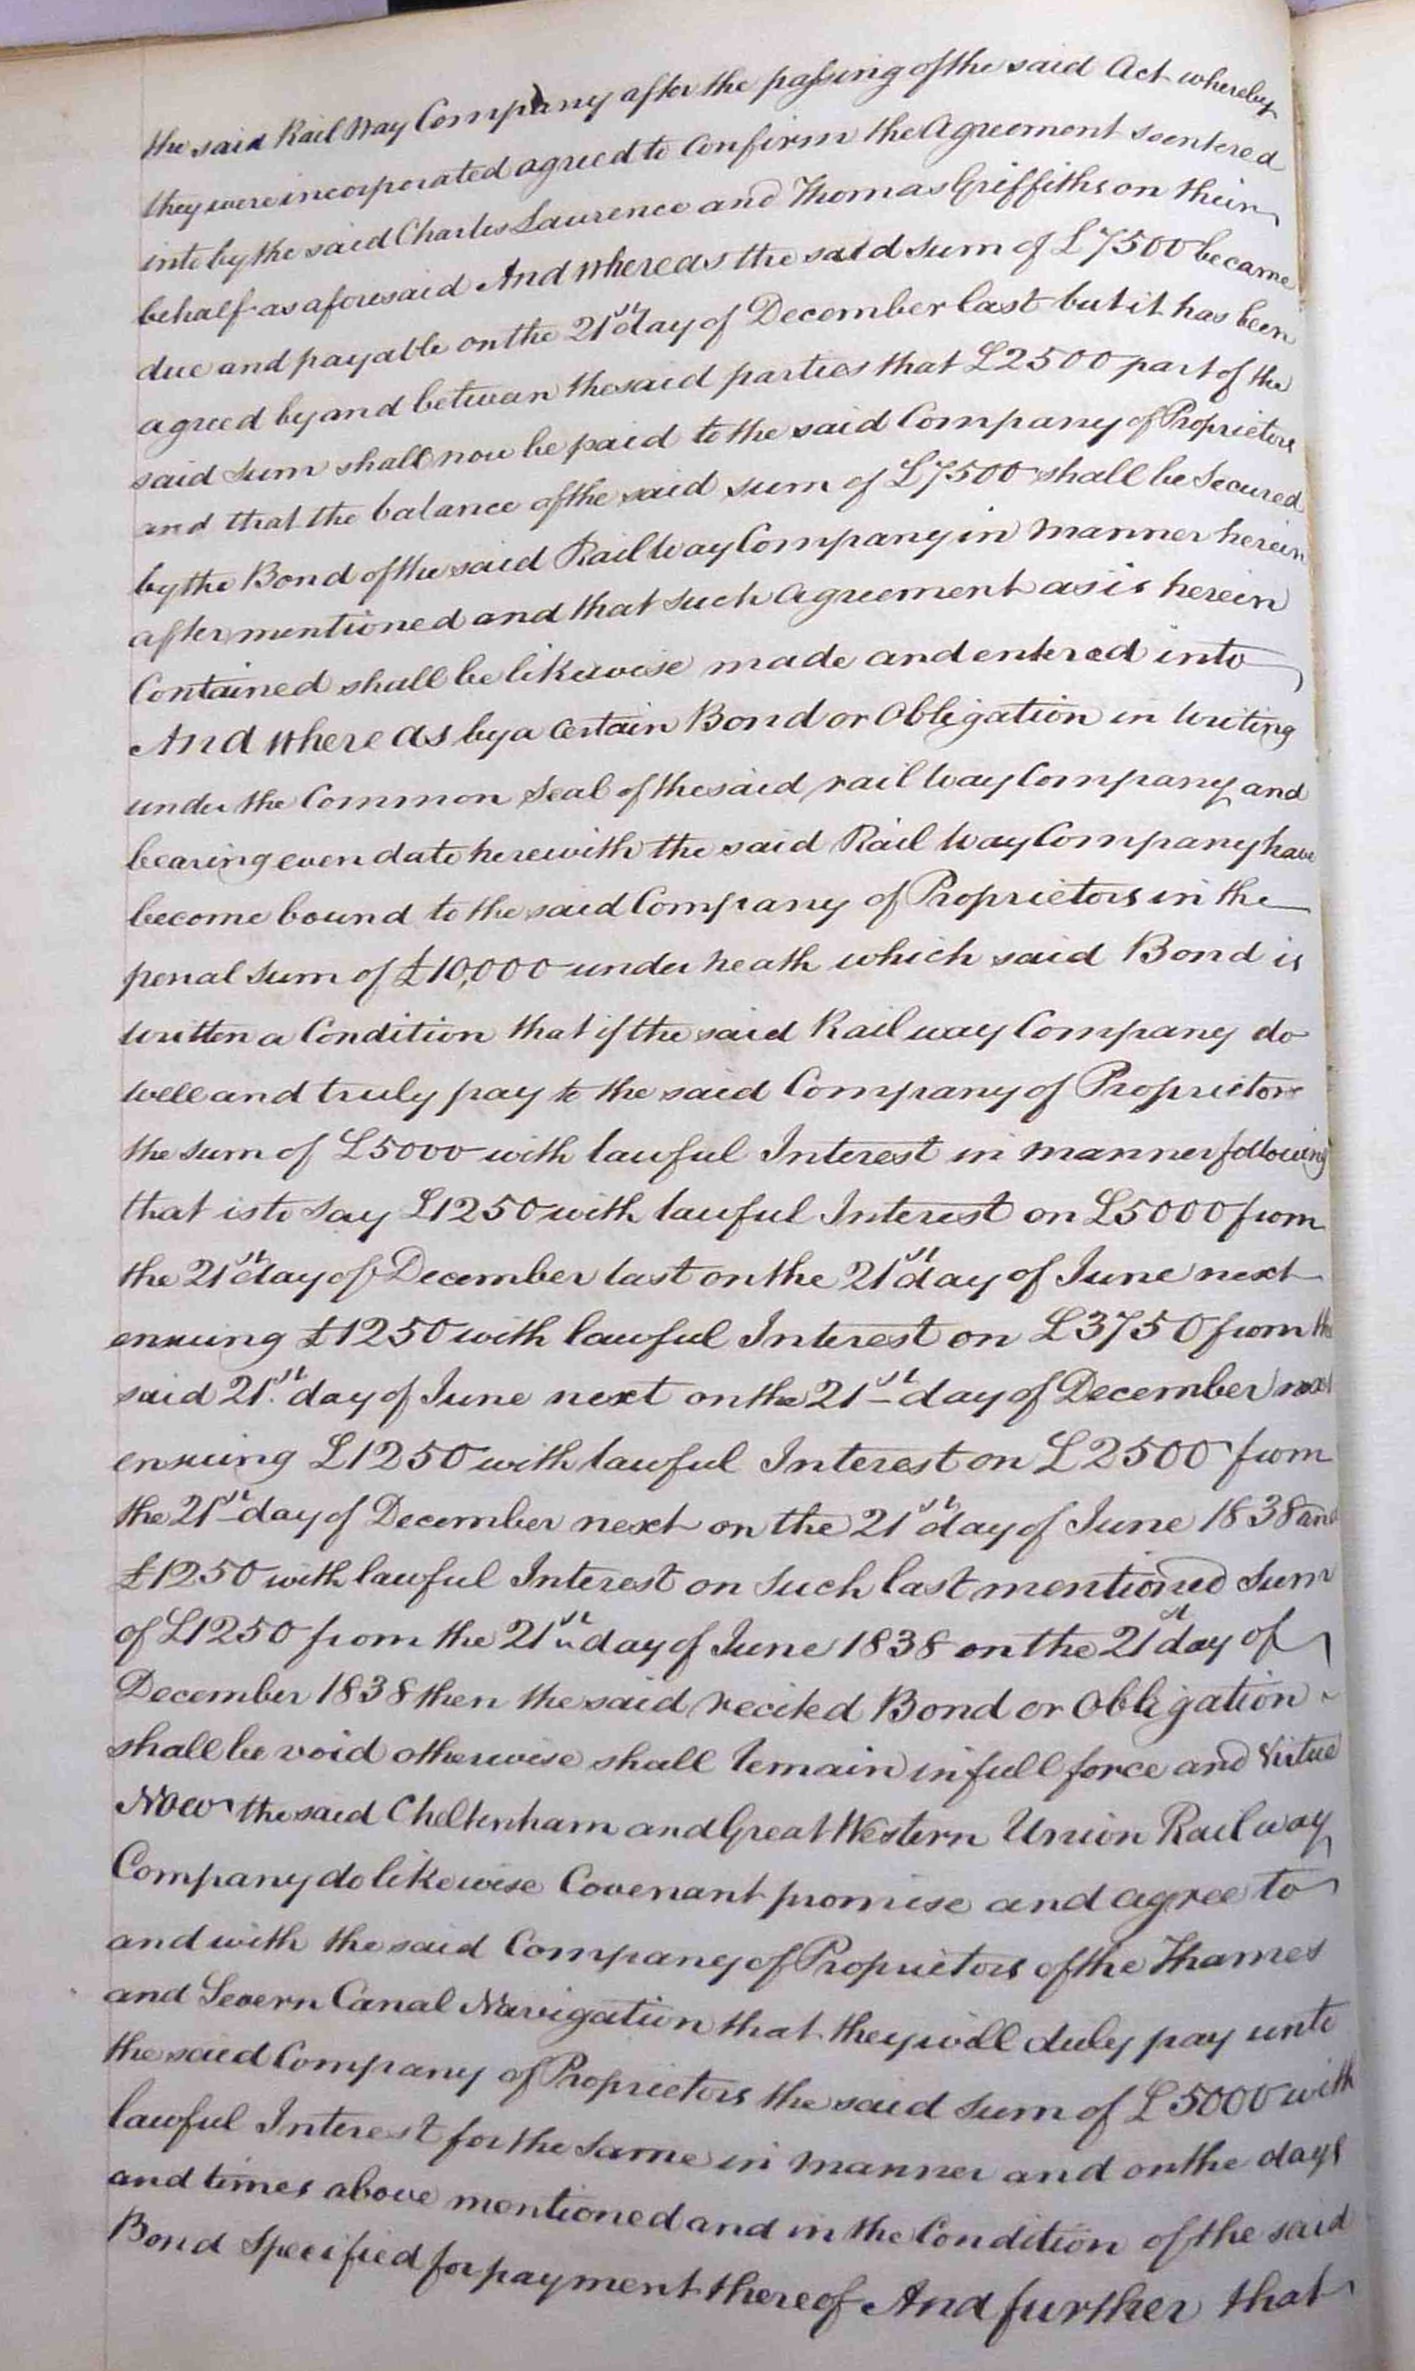 the said Rail Way Company after the passing of the said Act whereby
they were incorporated agreed to Confirm the Agreement so entered
into by the said Charles Laurence and Thomas Griffiths on their
behalf as aforesaid And whereas the said sum of £7500 became
due and payable on the 21st day of December last but it has been
agreed by and between the said parties that £2500 part of the
said sum shall now be paid to the said Company of Proprietors
and that the balance of the said sum of £7500 shall be Secured
by the Bond of the said Railway Company in manner herein
after mentioned and that such Agreement as is herein
Contained shall be likewise made and entered into
And whereas by a certain Bond or Obligation in Writing
under the Common Seal of the said rail Way Company and
bearing even date herewith the said Rail Way Company have
become bound to the said Company of Proprietors in the
penal sum of £10,000 underneath which said Bond is
written a Condition that if the said Railway Company do
well and truly pay to the said Company of Proprietors
the sum of £5000 with lawful Interest in manner following
that is to say £1250 with lawful Interest on £5000 from
the 21st day of December last on the 21st day of June next
ensuing £1250 with lawful Interest on £3750 from the
said 21st day of June next on the 21st day of December next
ensuing £1250 with lawful Interest on £2500 from
the 21st day of December next on the 21st day of June 1838 and
£1250 with lawful Interest on such last mentioned Sum
of £1250 from the 21st day of June 1838 on the 21st day of
December 1838 then the said recited Bond or Obligation
shall be void otherwise shall remain in full force and Virtue
Now the said Cheltenham and Great Western Union Railway
Company do likewise Covenant promise and agree to
and with the said Company of Proprietors of the Thames
and Severn Canal Navigation that they will duly pay unto
the said Company of Proprietors the said sum of £5000 with
lawful Interest for the same in manner and on the days
and times above mentioned and in the Condition of the said
Bond Specified for payment thereof And further that